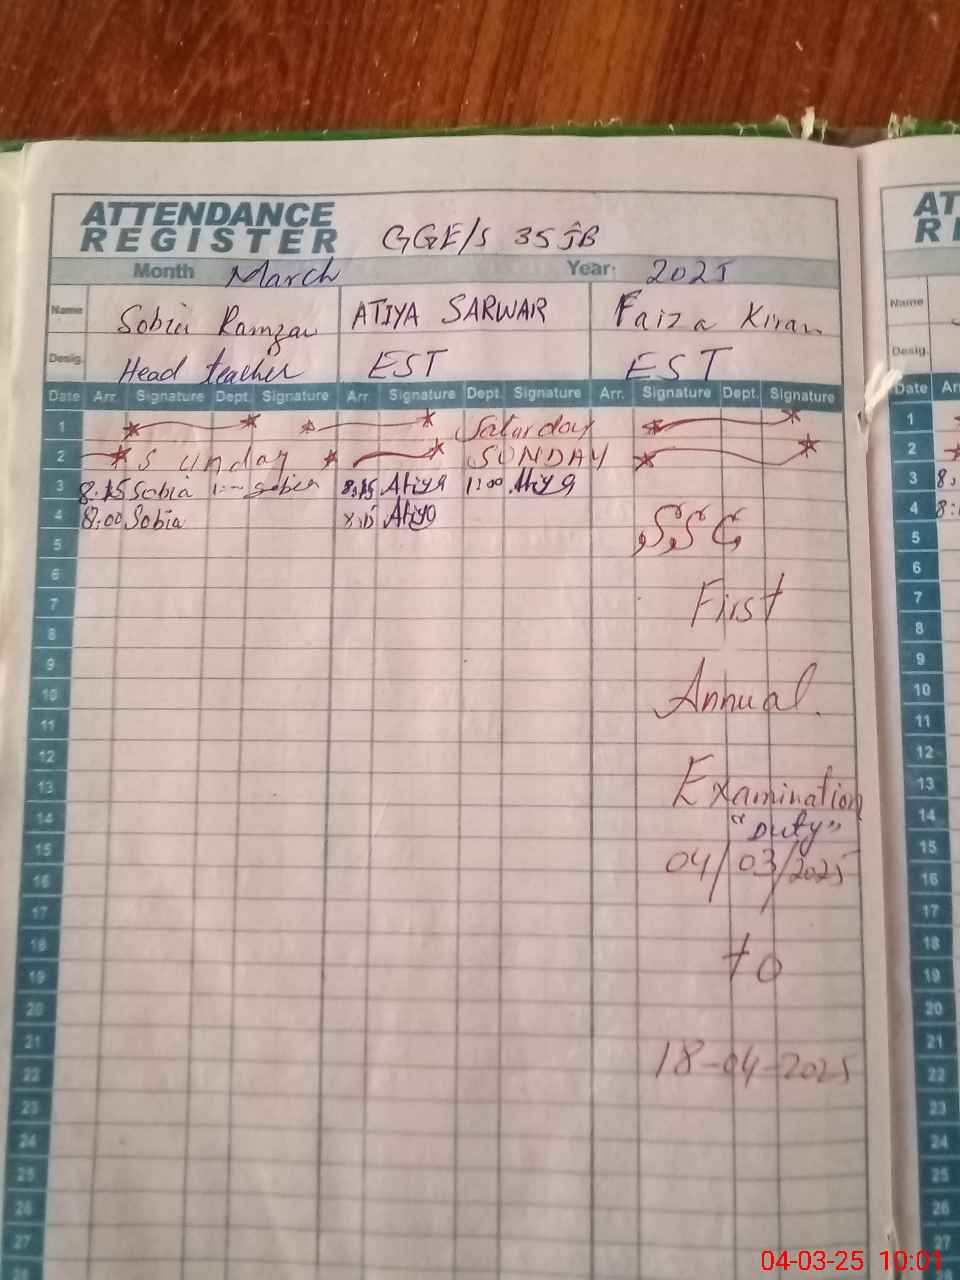 ATTENDANCE
REGISTER
GGE/S 35 JB
Month March Year: 2025
Name Sobia Ramzan ATIYA SARWAR Faiza Kiran
Desig. Head teacher EST EST
Date Arr. Signature Dept. Signature Arr. Signature Dept. Signature Arr. Signature Dept. Signature
1 Saturday
2 Sunday SUNDAY
3 8.15 Sobia 1:-- Sobia 8,15 Atiya 1:00 Atiya
4 8,00 Sobia Atiya
5 SSC
6
7 First
8
9
10 Annual.
11
12
13 Examination
14 "Duty"
15 04/03/2025
16
17
18 to
19
20
21 18-04-2025
22
23
24
25
26
27
28
AT
RE
Name
Desig.
Date Arr
1
2
3 8,
4 8:
5
6
7
8
9
10
11
12
13
14
15
16
17
18
19
20
21
22
23
24
25
26
27
04-03-25 10:01